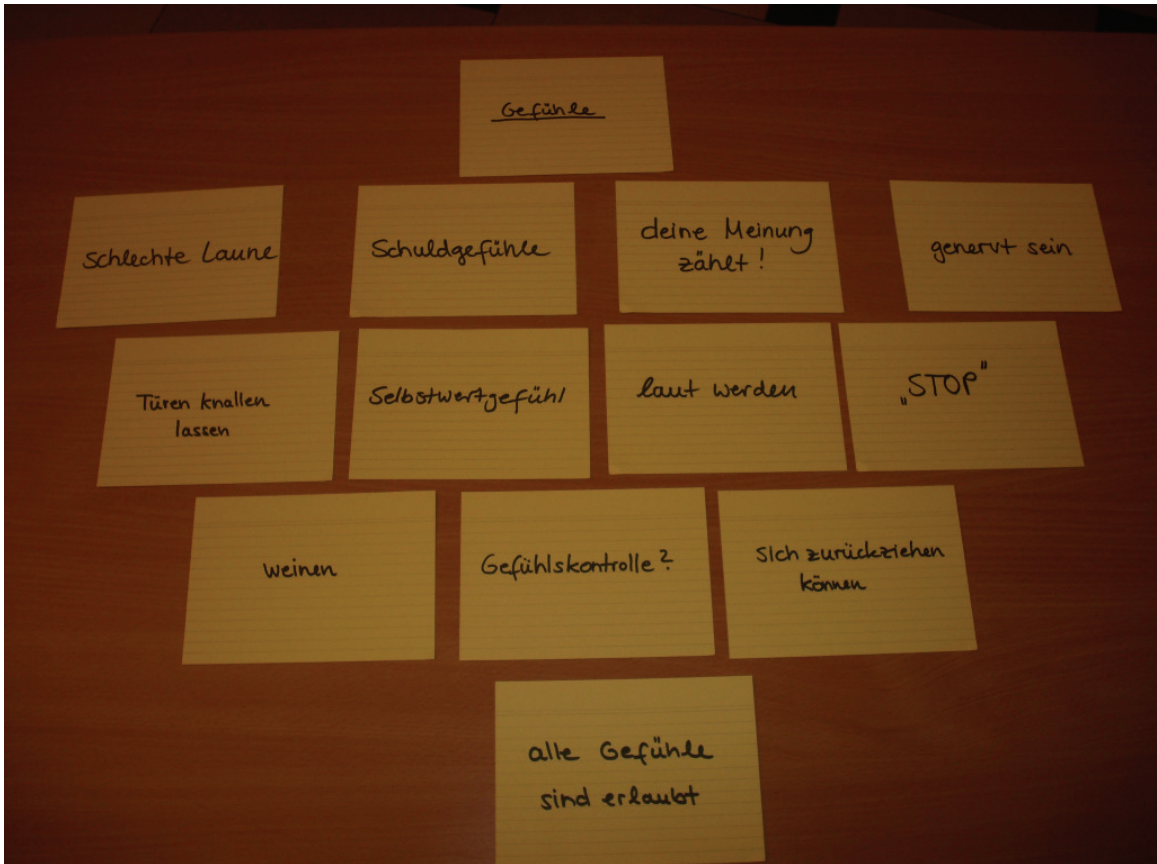 Gefühle
schlechte Laune
Schuldgefühle
deine Meinung
zählt!
genervt sein
Türen knallen
lassen
Selbstwertgefühl
laut werden
„STOP"
weinen
Gefühlskontrolle?
sich zurückziehen
können
alle Gefühle
sind erlaubt